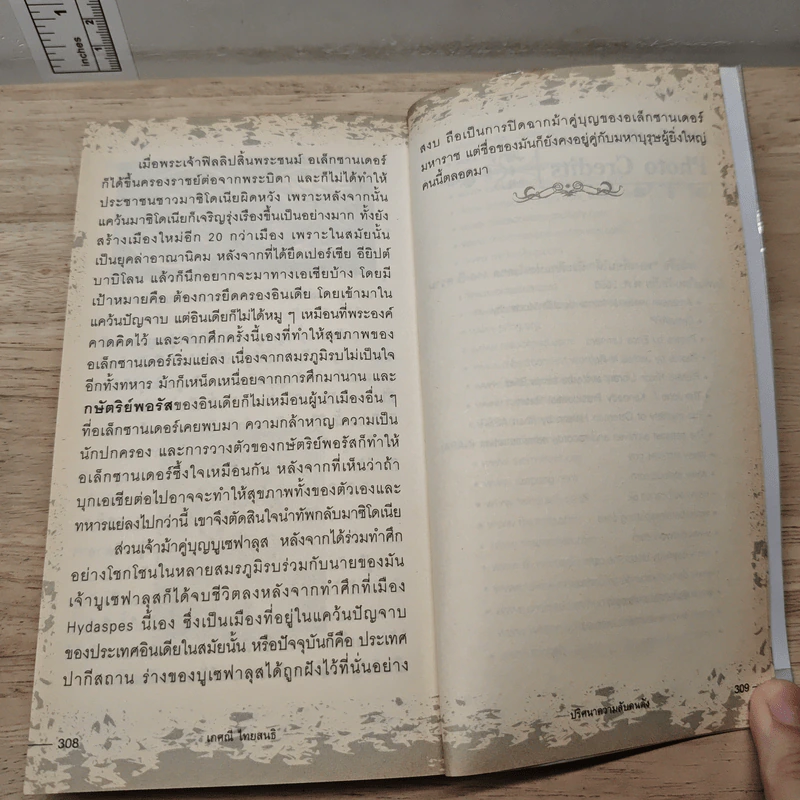 inches
1
2
เมื่อพระเจ้าฟิลลิปสิ้นพระชนม์ อเล็กซานเดอร์
ก็ได้ขึ้นครองราชย์ต่อจากพระบิดา และก็ไม่ได้ทำให้
ประชาชนชาวมาซิโดเนียผิดหวัง เพราะหลังจากนั้น
แคว้นมาซิโดเนียก็เจริญรุ่งเรืองขึ้นเป็นอย่างมาก ทั้งยัง
สร้างเมืองใหม่อีก 20 กว่าเมือง เพราะในสมัยนั้น
เป็นยุคล่าอาณานิคม หลังจากที่ได้ยึดเปอร์เซีย อียิปต์
บาบิโลน แล้วก็นึกอยากจะมาทางเอเชียบ้าง โดยมี
เป้าหมายคือ ต้องการยึดครองอินเดีย โดยเข้ามาใน
แคว้นปัญจาบ แต่อินเดียก็ไม่ได้หมู ๆ เหมือนที่พระองค์
คาดคิดไว้ และจากศึกครั้งนี้เองที่ทำให้สุขภาพของ
อเล็กซานเดอร์เริ่มแย่ลง เนื่องจากสมรภูมิรบไม่เป็นใจ
อีกทั้งทหาร ม้าก็เหน็ดเหนื่อยจากการศึกมานาน และ
กษัตริย์พอรัสของอินเดียก็ไม่เหมือนผู้นำเมืองอื่น ๆ
ที่อเล็กซานเดอร์เคยพบมา ความกล้าหาญ ความเป็น
นักปกครอง และการวางตัวของกษัตริย์พอรัสก็ทำให้
อเล็กซานเดอร์ซึ้งใจเหมือนกัน หลังจากที่เห็นว่าถ้า
บุกเอเชียต่อไปอาจจะทำให้สุขภาพทั้งของตัวเองและ
ทหารแย่ลงไปกว่านี้ เขาจึงตัดสินใจนำทัพกลับมาซิโดเนีย
ส่วนเจ้าม้าคู่บุญบูเซฟาลุส หลังจากได้ร่วมทำศึก
อย่างโชกโชนในหลายสมรภูมิรบร่วมกับนายของมัน
เจ้าบูเซฟาลุสก็ได้จบชีวิตลงหลังจากทำศึกที่เมือง
Hydaspes นี้เอง ซึ่งเป็นเมืองที่อยู่ในแคว้นปัญจาบ
ของประเทศอินเดียในสมัยนั้น หรือปัจจุบันก็คือ ประเทศ
ปากีสถาน ร่างของบูเซฟาลุสได้ถูกฝังไว้ที่นั่นอย่าง
308
เกศณี ไทยสนธิ
สงบ ถือเป็นการปิดฉากม้าคู่บุญของอเล็กซานเดอร์
มหาราช แต่ชื่อของมันก็ยังคงอยู่คู่กับมหาบุรุษผู้ยิ่งใหญ่
คนนี้ตลอดมา
ปริศนาความลับคนดัง
309